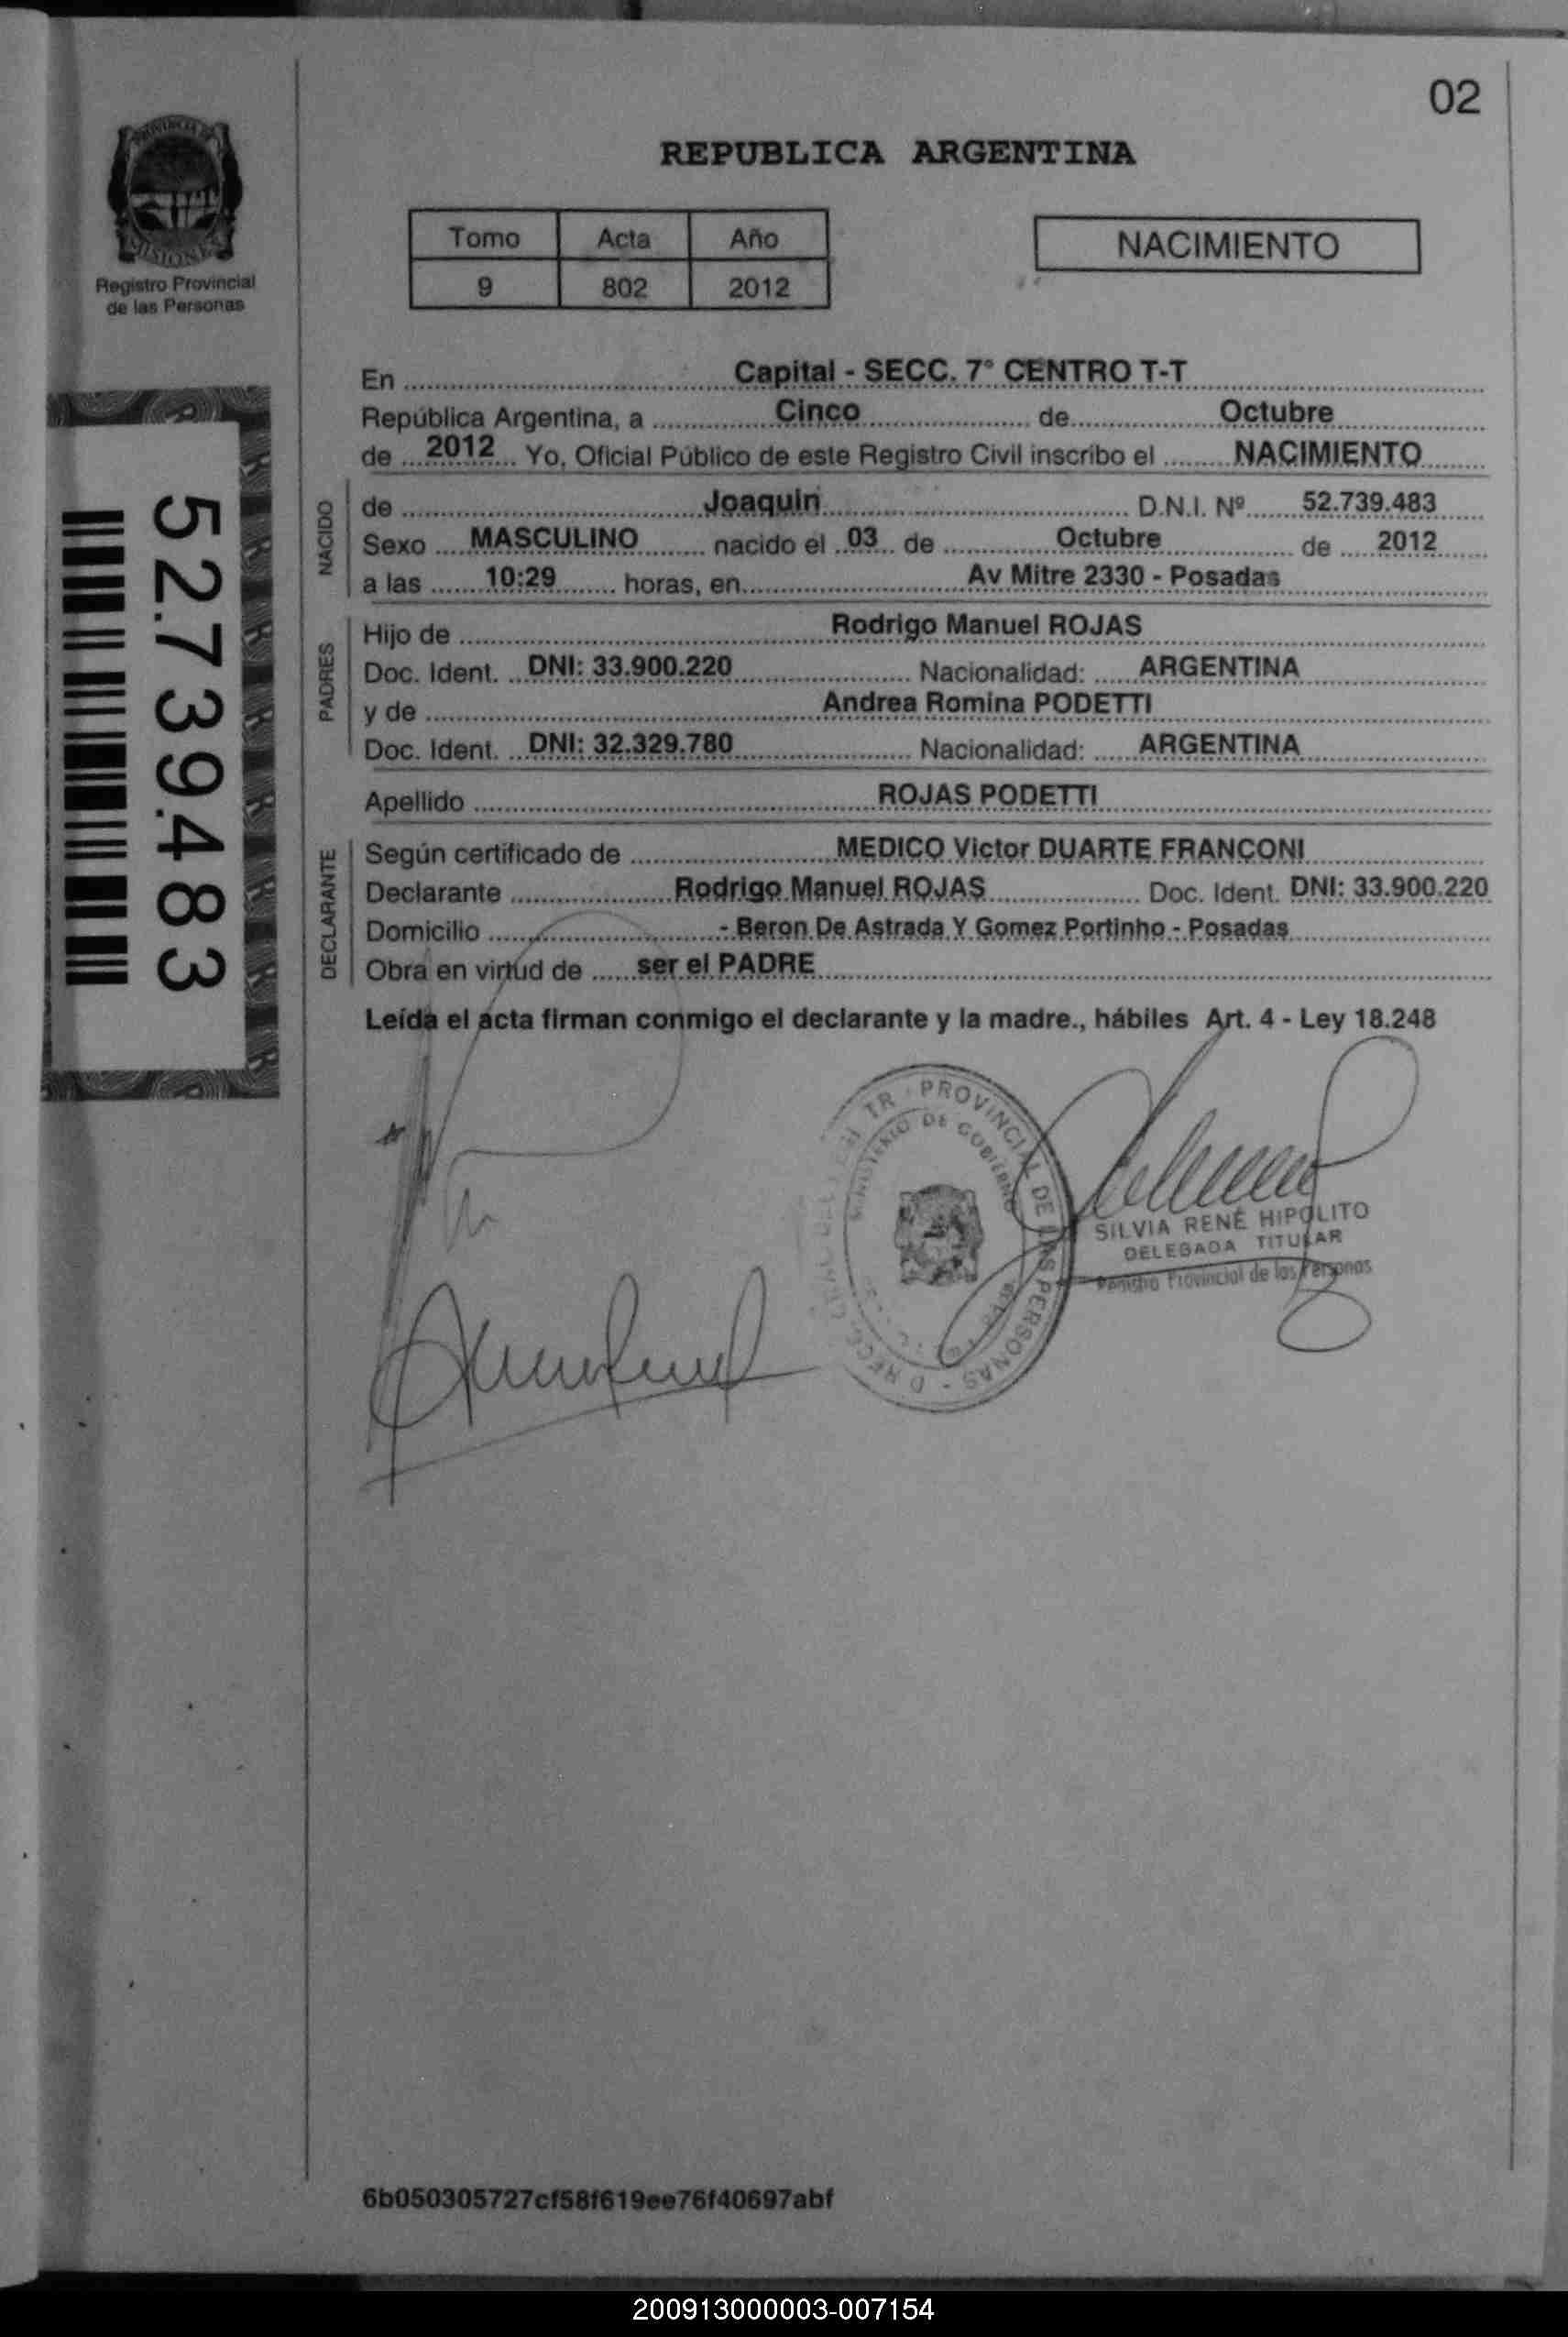 02
PROVINCIA DE
MISIONES
Registro Provincial
de las Personas
REPUBLICA ARGENTINA
Tomo Acta Año
9 802 2012
NACIMIENTO
52.739.483
En Capital - SECC. 7° CENTRO T-T
República Argentina, a Cinco de Octubre
de 2012 Yo, Oficial Público de este Registro Civil inscribo el NACIMIENTO
NACIDO
de Joaquin D.N.I. Nº 52.739.483
Sexo MASCULINO nacido el 03 de Octubre de 2012
a las 10:29 horas, en Av Mitre 2330 - Posadas
PADRES
Hijo de Rodrigo Manuel ROJAS
Doc. Ident. DNI: 33.900.220 Nacionalidad: ARGENTINA
y de Andrea Romina PODETTI
Doc. Ident. DNI: 32.329.780 Nacionalidad: ARGENTINA
Apellido ROJAS PODETTI
DECLARANTE
Según certificado de MEDICO Victor DUARTE FRANCONI
Declarante Rodrigo Manuel ROJAS Doc. Ident. DNI: 33.900.220
Domicilio - Beron De Astrada Y Gomez Portinho - Posadas
Obra en virtud de ser el PADRE
Leída el acta firman conmigo el declarante y la madre., hábiles Art. 4 - Ley 18.248
PROVINCIAL DE LAS PERSONAS
MINISTERIO DE GOBIERNO
SILVIA RENÉ HIPOLITO
DELEGADA TITULAR
Registro Provincial de las Personas
6b050305727cf58f619ee76f40697abf
200913000003-007154